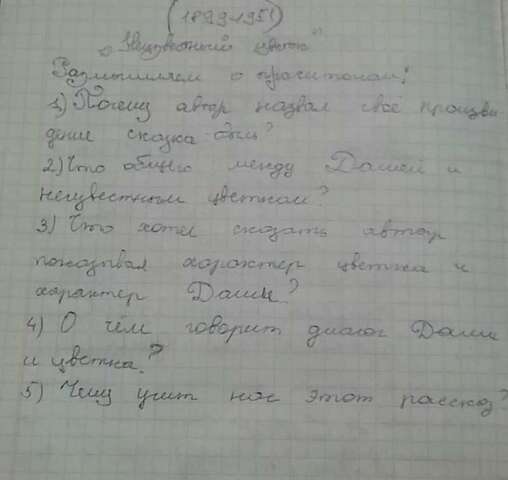 (1899-1951)
"Неизвестный цветок"
Размышляем о прочитаном:
1) Почему автор назвал своё произве
дение сказка-быль?
2) Что общего между Дашей и
неизвестным цветком?
3) Что хотел сказать автор
показывая характер цветка и
характер Даши?
4) О чём говорит диалог Даши
и цветка?
5) Чему учит нас этот рассказ?